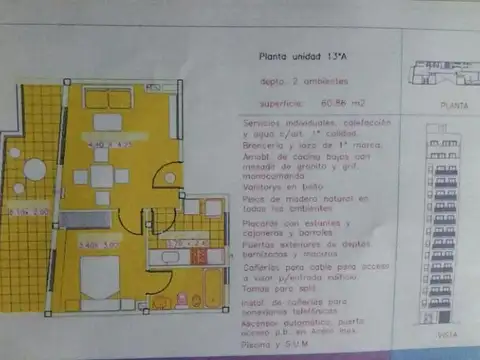 Planta unidad 13°A
depto. 2 ambientes
superficie: 60.86 m2
Servicios individuales, calefacción
y agua c/art. 1° calidad.
Broncería y loza de 1° marca.
Amobl. de cocina bajos con
mesada de granito y grif.
monocomando
Vanitorys en baño
Pisos de madera natural en
todos los ambientes
Placards con estantes y
cajoneras y barrales
Puertas exteriores de deptos
barnizadas y macizas
Cañerías para cable para acceso
a visor p/entrada edificio
Tomas para split.
Instal. de cañerías para
conexiones telefónicas
Ascensor automático, puerta
acero p.b. en Acero Inox.
Piscina y S.U.M.
PLANTA
VISTA
4.40 x 4.25
3.40 x 3.00